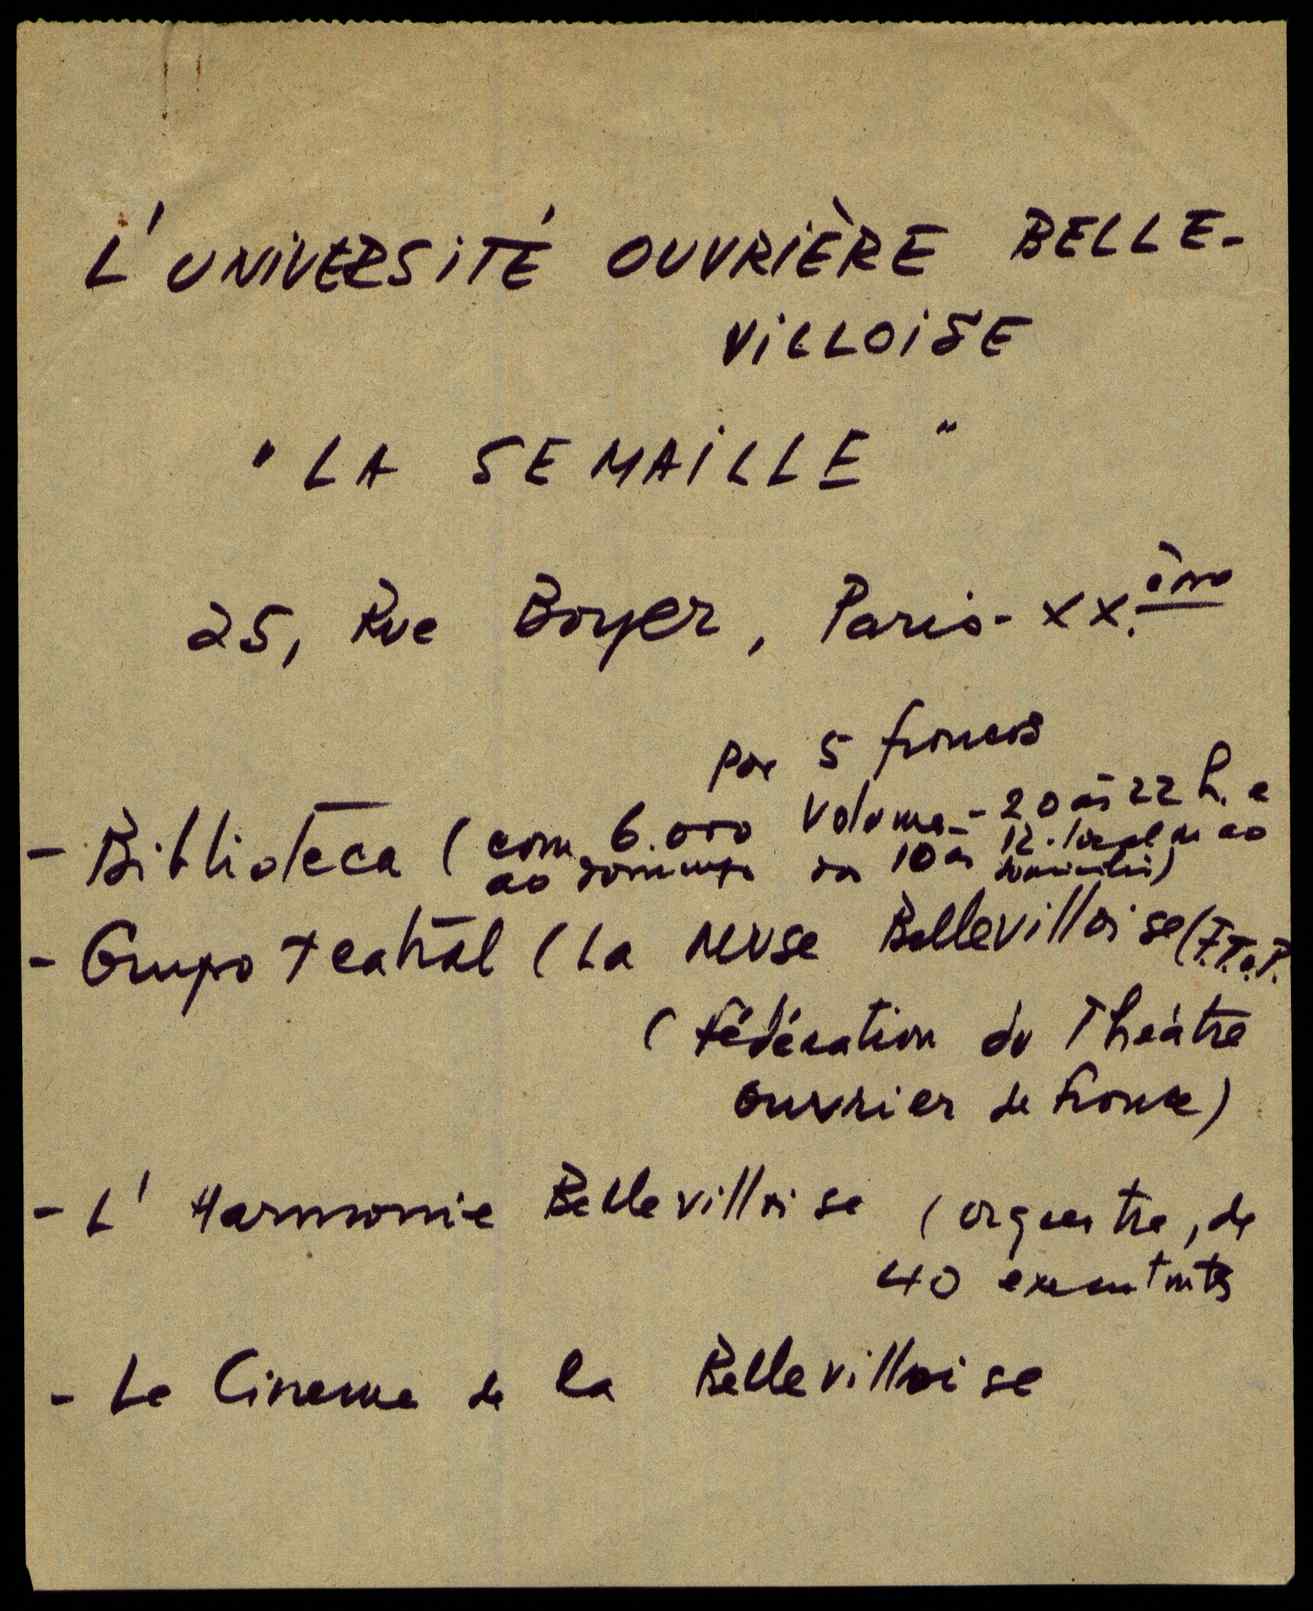 L'UNIVERSITÉ OUVRIÈRE BELLE-
VILLOISE
"LA SEMAILLE"
25, Rue Boyer, Paris - XX.ème
por 5 francos
- Biblioteca (com 6.000 volumes - 20 às 22 h. e
ao domingo das 10 às 12. local e ao
domicílio)
- Grupo teatral (La Muse Bellevilloise (F.T.O.F.
(Fédération du Theàtre
ouvrier de France)
- L'Harmonie Bellevilloise (orquestra, de
40 executantes
- Le Cinema de la Bellevilloise